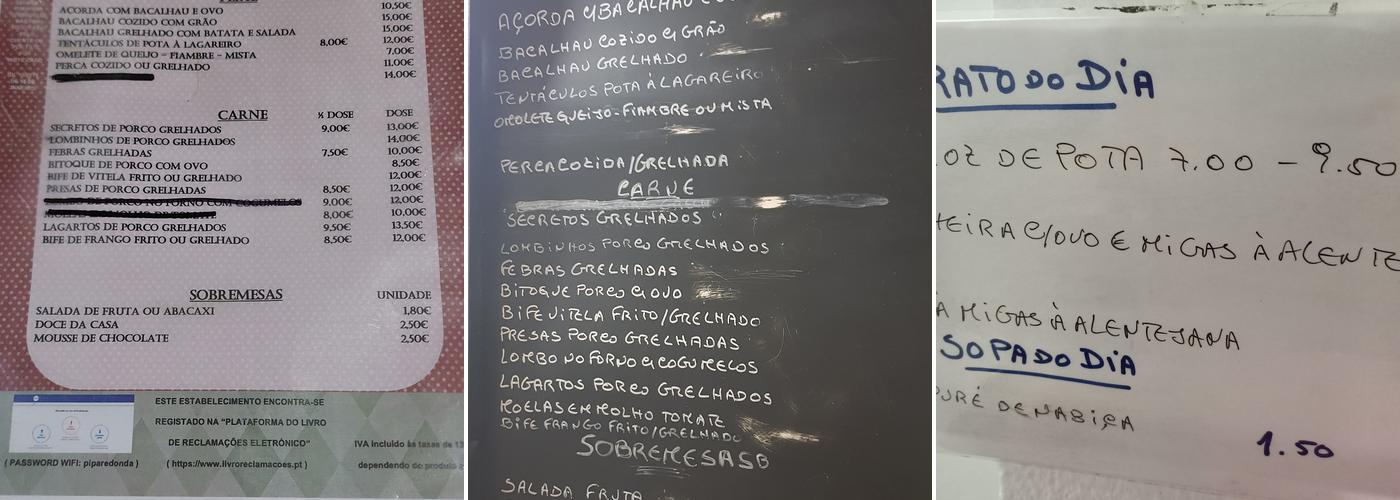 AÇORDA COM BACALHAU E OVO 10,50€
BACALHAU COZIDO COM GRÃO 15,00€
BACALHAU GRELHADO COM BATATA E SALADA 15,00€
TENTÁCULOS DE POTA À LAGAREIRO 8,00€ 12,00€
OMELETE DE QUEIJO - FIAMBRE - MISTA 7,00€
PERCA COZIDO OU GRELHADO 11,00€
14,00€
CARNE ½ DOSE DOSE
SECRETOS DE PORCO GRELHADOS 9,00€ 13,00€
LOMBINHOS DE PORCO GRELHADOS 14,00€
FEBRAS GRELHADAS 7,50€ 10,00€
BITOQUE DE PORCO COM OVO 8,50€
BIFE DE VITELA FRITO OU GRELHADO 12,00€
PRESAS DE PORCO GRELHADAS 8,50€ 12,00€
DE PORCO NO FORNO COM COGUMELOS 9,00€ 12,00€
8,00€ 10,00€
LAGARTOS DE PORCO GRELHADOS 9,50€ 13,50€
BIFE DE FRANGO FRITO OU GRELHADO 8,50€ 12,00€
SOBREMESAS UNIDADE
SALADA DE FRUTA OU ABACAXI 1,80€
DOCE DA CASA 2,50€
MOUSSE DE CHOCOLATE 2,50€
ESTE ESTABELECIMENTO ENCONTRA-SE
REGISTADO NA “PLATAFORMA DO LIVRO
DE RECLAMAÇÕES ELETRÓNICO”
( https://www.livroreclamacoes.pt )
( PASSWORD WIFI: piparedonda )
IVA incluido às taxas de 13
dependendo do produto
AÇORDA C/BACALHAU
BACALHAU COZIDO C/ GRÃO
BACALHAU GRELHADO
TENTÁCULOS POTA À LAGAREIRO
OMOLETE QUEIJO-FIAMBRE OU MISTA
PERCA COZIDA/GRELHADA
CARNE
SECRETOS GRELHADOS
LOMBINHOS PORCO GRELHADOS
FEBRAS GRELHADAS
BITOQUE PORCO C/OVO
BIFE VITELA FRITO/GRELHADO
PRESAS PORCO GRELHADAS
LOMBO NO FORNO C/COGUMELOS
LAGARTOS PORCO GRELHADOS
MOELAS EM MOLHO TOMATE
BIFE FRANGO FRITO/GRELHADO
SOBREMESASO
SALADA FRUTA
RATO DO DIA
OZ DE POTA 7.00 - 9.50
TEIRA C/OVO E MIGAS À ALENTE
A MIGAS À ALENTEJANA
SOPA DO DIA
PURÉ DE NABIÇA
1.50